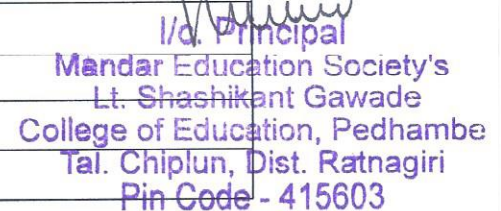 I/c. Principal
Mandar Education Society's
Lt. Shashikant Gawade
College of Education, Pedhambe
Tal. Chiplun, Dist. Ratnagiri
Pin Code - 415603